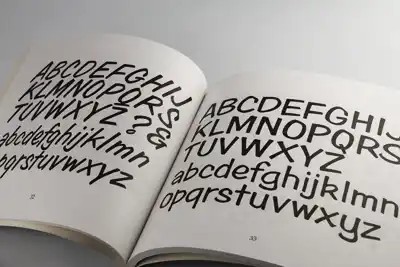 ABCDEFGHIJ
KLMNOPQRS&
TUVWXYZ?
abcdefghijklmn
pqrstuvwxyz
32
ABCDEFGHIJ
KLMNOPQRS
TUVWXYZ
abcdefghijklmn
opqrstuvwxyz
33